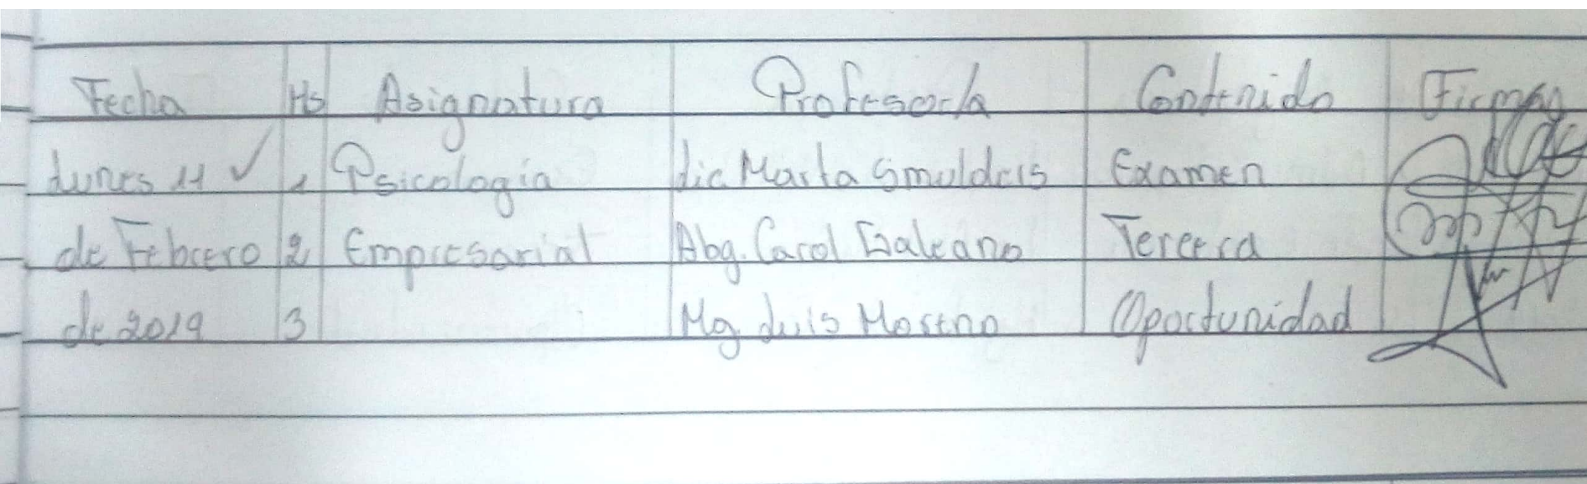 Fecha Hs Asignatura Profesor/a Contenido Firmas
Lunes 11 ✓ 1 Psicología Lic Marta Smulders Examen
de Febrero 2 Empresarial Abg. Carol Galeano Tercera
de 2019 3 Mg Luis Moreno Oportunidad